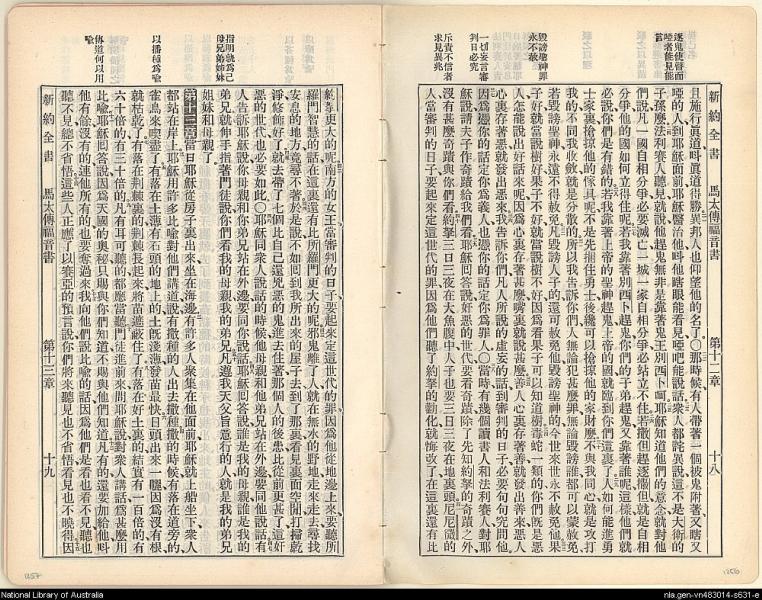 新約全書 馬太傳福音書 第十二章 十八
逐鬼使瞽而
啞者能見能
言
毀謗聖神罪
永不赦
一切妄言審
判日必究
斥責不信者
求見異兆
且施行眞道呌眞道得勝異邦人也仰望他的名了〇那時候有人帶著一個被鬼附著又瞎又
啞的人到耶穌面前耶穌醫治他呌他瞎眼能看見啞吧能說話衆人都詫異說這不是大衛的
子孫麼法利賽人聽見就說他趕鬼無非是靠著鬼王別西卜呵耶穌知道他們的意念就對他
們說凡一國自相分爭必要滅亡一城一家自相分爭必站立不住若撒但趕逐撒但就是自相
分爭他的國如何立得住呢若我靠著別西卜趕鬼你們的子弟趕鬼又靠著誰呢這樣他們就
必說你們是有錯的若我靠著上帝的聖神趕鬼上帝的國就臨到你們這裏了人如何能進勇
士家裏搶掠他的傢具呢不是先捆住勇士後纔可以搶掠他的家財麼不與我同心就是攻打
我的不同我收斂就是分散的所以我告訴你們人無論犯甚麼罪無論毀謗誰都可以蒙赦免
若毀謗聖神永遠不得赦免凡毀謗人子的還可赦免他毀謗聖神的今世來世永不赦免他果
子好就當說樹好果子不好就當說樹不好因爲看果子可以知道樹毒蛇一類的你們旣是惡
人怎能說出好話來呢因爲心裏存著甚麼嘴裏就說甚麼善人心裏存著善就發出善來惡人
心裏存著惡就發出惡來我告訴你們凡人所說的虛妄的話到審判的日子必要句句究問他
因爲憑你的話定你爲義人也憑你的話定你爲罪人〇當時有幾個讀書人和法利賽人對耶
穌說請夫子作奇蹟給我們看耶穌回答說奸惡的世代要看奇蹟除了先知約拏的奇蹟之外
沒有甚麼奇蹟與你們看約拏三日三夜在大魚腹中人子也要三日三夜在地裏頭尼尼微的
人當審判的日子要起來定這世代的罪因爲他們聽了約拏的勸化就悔改了在這裏還有比
指明就爲己
母兄弟姊妹
以播種爲喩
傳道何以用
喩
約拏更大的呢南方的女王當審判的日子要起來定這世代的罪因爲他從地邊上來要聽所
羅門智慧的話在這裏還有比所羅門更大的呢邪鬼離了人就在無水的野地走來走去尋找
安息的地方竟尋不著於是說不如回到我所出來的屋子去到了那裏看見裏面空閒打掃乾
淨修飾好了就去帶了七個比自己還兇惡的鬼進去住著那個人的後患比從前更甚了這奸
惡的世代也必要如此〇耶穌同衆人說話的時候他母親和他弟兄站在外邊要同他說話有
人告訴耶穌說你母親和你弟兄站在外邊要同你說話耶穌回答說誰是我的母親誰是我的
弟兄就伸手指著門徒說你們看我的母親我的弟兄凡遵我天父旨意行的人就是我的弟兄
姐妹和母親了
第十三章當日耶穌從房子裏出來坐在海邊有許多人衆集在他面前耶穌就上船坐下衆人
都站在岸上耶穌用許多比喩對他們講道說有撒種的人出去撒種撒的時候有落在道旁的
雀鳥來喫盡了有落在土薄有石頭的地上的土旣淺薄發苗最快日頭出來一曬因爲沒有根
就枯乾了有落在荆棘裏的荆棘長起來將苗遮蔽住了有落在好土裏的結實有一百倍的有
六十倍的有三十倍的凡有耳可聽的都應當聽門徒進前來問耶穌說對衆人講話爲甚麼用
比喩耶穌回答說因爲天國的奧秘只賜與你們知道不賜與他們知道凡有的還要加給他呌
他有餘沒有的連他所有的也要奪過來我向他們說比喩的話因爲他們是看也看不見聽也
聽不見總不省悟這些人正應了以賽亞的預言說你們將來聽見也不省悟看見也不曉得因
新約全書 馬太傳福音書 第十三章 十九
1257
1256
National Library of Australia
nla.gen-vn483014-s631-e